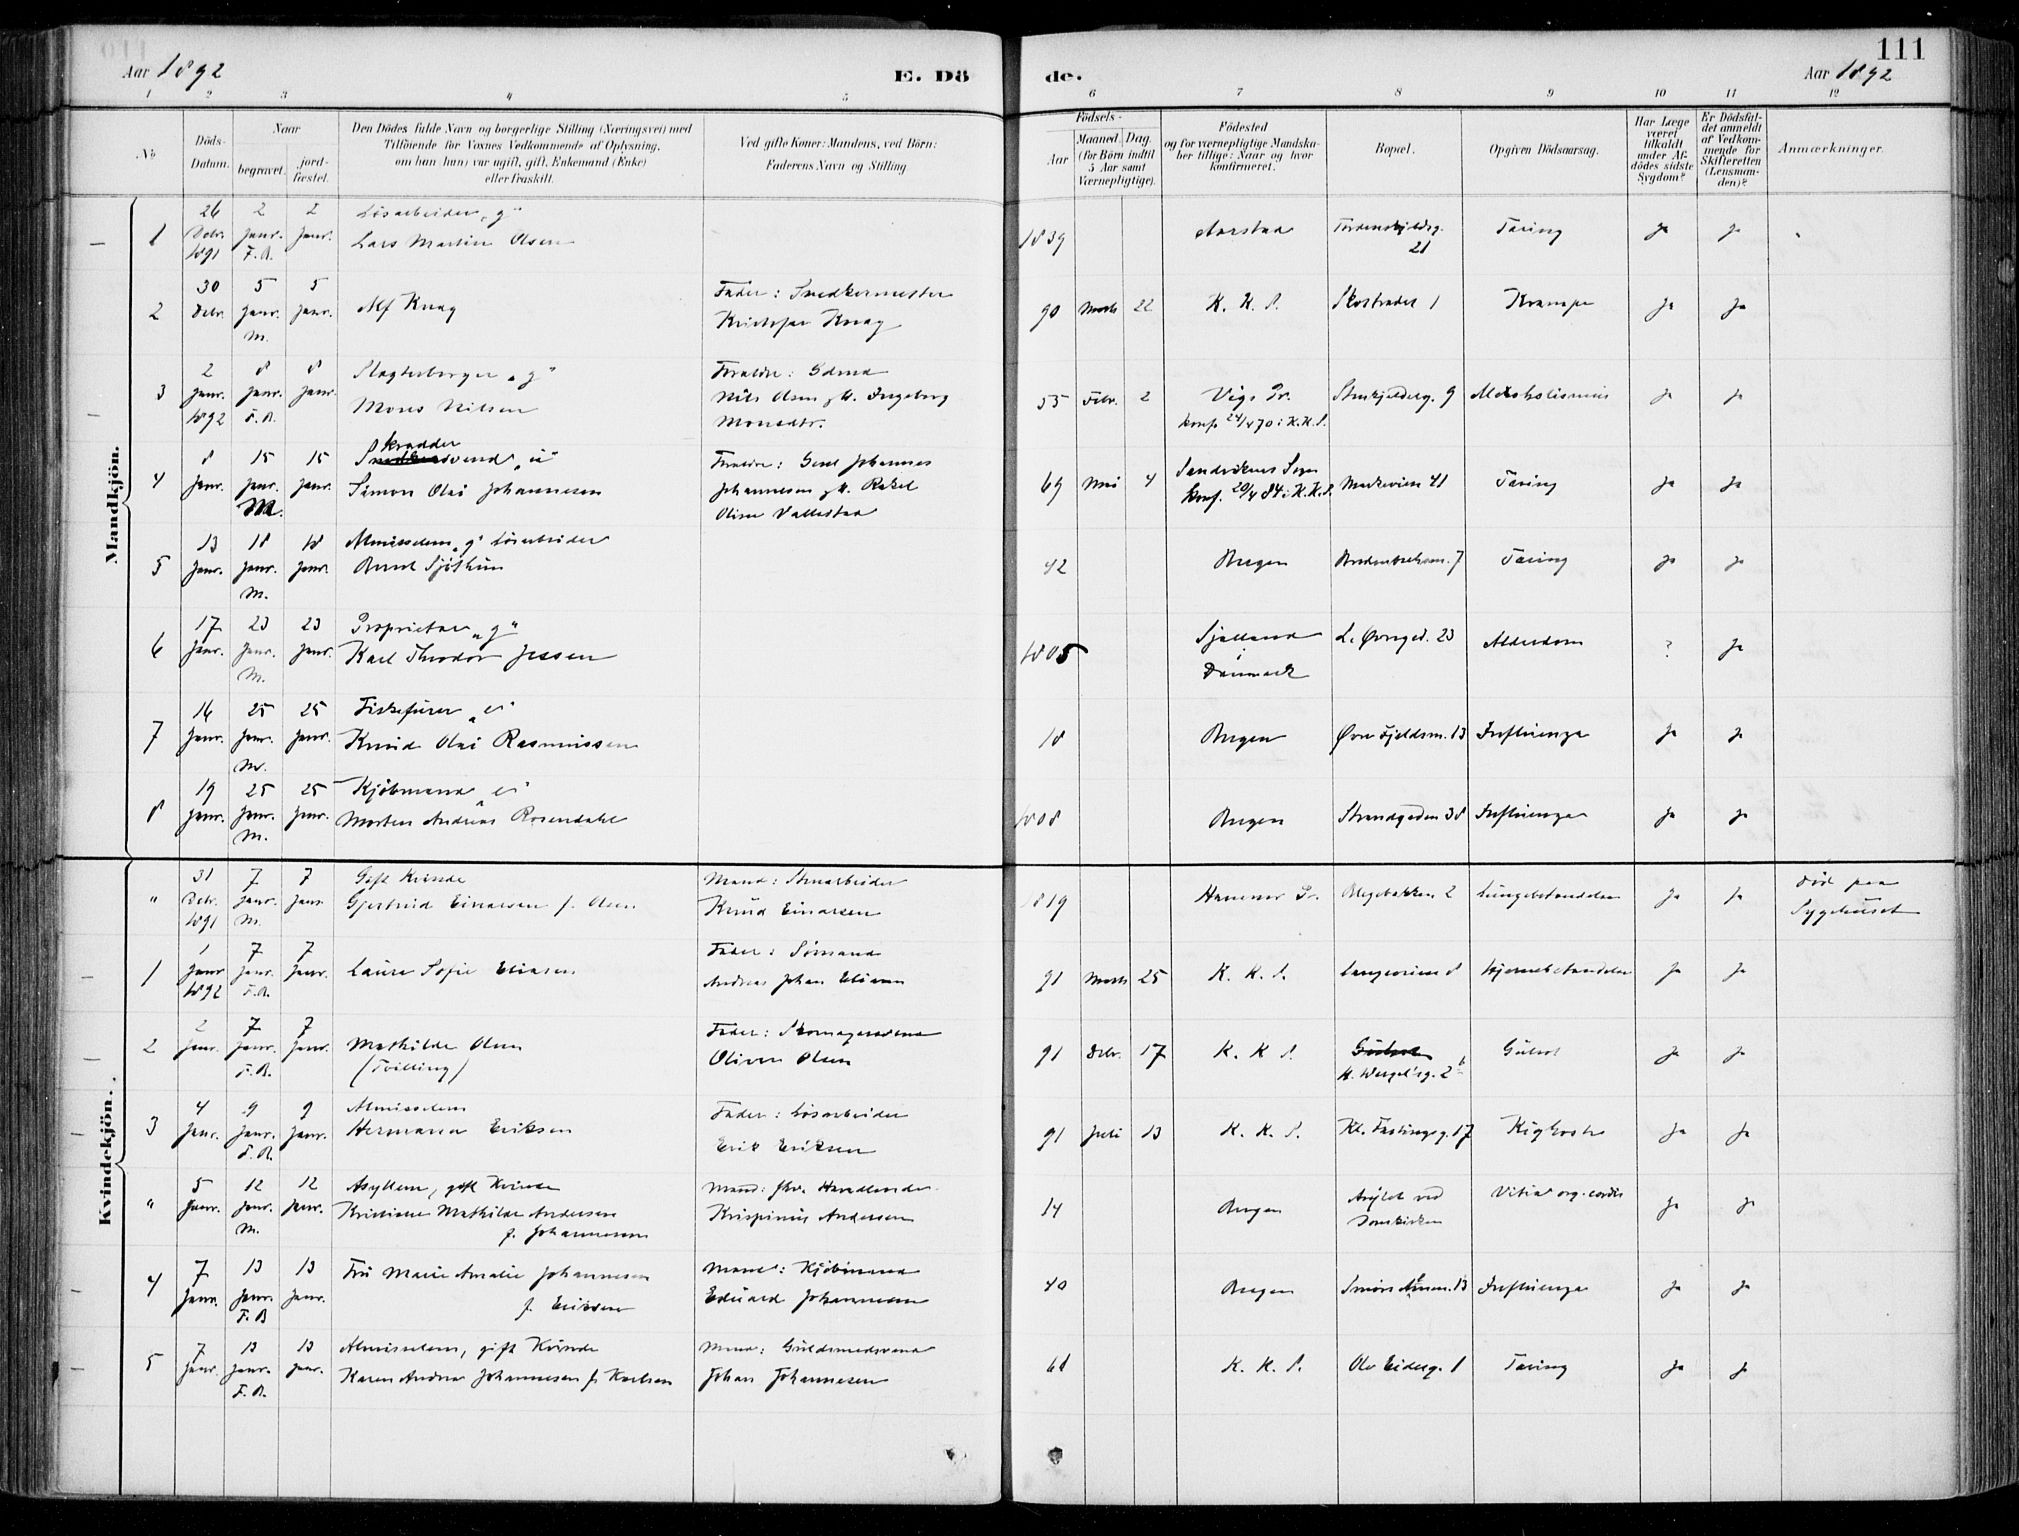 111
Aar 1892
E. Dö
de.
Aar 1892
1 2 3 4 5 6 7 8 9 10 11 12
No
Döds-Datum.
Naar
begravet.
jord-fæstet.
Den Dödes fulde Navn og borgerlige Stilling (Næringsvei) med
Tilföiende for Voxnes Vedkommende af Oplysning,
om han (hun) var ugift, gift, Enkemand (Enke)
eller fraskilt.
Ved gifte Koner: Mandens, ved Börn:
Faderens Navn og Stilling
Födsels-
Aar
Maaned. Dag.
(for Börn indtil
5 Aar samt
Værnepligtige).
Födested
og for værnepligtige Mandska-
ber tillige: Naar og hvor
konfirmeret.
Bopæl.
Opgiven Dödsaarsag.
Har Læge
været
tilkaldt
under Af-
dödes sidste
Sygdom?
Er Dödsfal-
det anmeldt
af Vedkom-
mende for
Skifteretten
(Lensman-
den)?
Anmærkninger.
Mandkjön.
1 26 Debr. 1891 2 Janr. F.A. 2 Janr. Løsarbeider „g"
Lars Martin Olsen 1839 Aarstad Tordenskjoldsg. 21 Tæring Ja Ja
2 30 Debr. 5 Janr. M. 5 Janr. Alf Knag Fader: Snedkermester
Kristofer Knag 90 Marts 22 K. K. S. Skostrædet 1 Krampe Ja Ja
3 2 Janr. 1892 8 Janr. F.A. 8 Janr. Slagterborger „g"
Mons Nilsen Forældre: Gdmd
Nils Olsen og H. Ingeborg
Monsdtr. 55 Febr. 2 Vigs Pr.
konf. 24/4 70 i K.K.S. Stenkjelderg. 9 Alkoholismus Ja Ja
4 8 Janr. 15 Janr. M. 15 Janr. Skrædder svend „u"
Simon Olai Johannesen Forældre: Johannes
Johannesen og H. Rakel
Oline Vallestad 69 Mai 4 Sandvikens Sogn
konf. 20/4 84 i K.K.S. Markeveien 41 Tæring Ja Ja
5 13 Janr. 18 Janr. M. 18 Janr. Almisselem „g" Løsarbeider
Bernt Sjøthun 42 Bergen 7 Tæring Ja Ja
6 17 Janr. 23 Janr. M. 23 Janr. Proprietær „g"
Karl Theodor Jessen 1805 Sjælland
i
Danmark L. Øvregd. 23 Alderdom ? Ja
7 16 Janr. 25 Janr. M. 25 Janr. Fiskefører „e"
Knud Olai Rasmussen 18 Bergen Øvre Fjeldsm. 13 Influenza Ja Ja
8 19 Janr. 25 Janr. M. 25 Janr. Kjøbmand „e"
Morten Andreas Rosendahl 1808 Bergen Strandgaden 38 Influenza Ja Ja
Kvindekjön.
" 31 Debr. 1891 7 Janr. M. 7 Janr Gift Kvinde
Gjertrud Einarsen f. Olsen Mand: Stenarbeider
Knud Einarsen 1819 Hammer Pr. Blegebakken 2 Lungebetændelse Ja Ja Død paa
Sygehuset
1 1 Janr 1892 7 Janr. F.A. 7 Janr. Laura Sofie Eliasen Fader: Sømand
Andreas Johan Eliasen 91 Marts 25 K. K. S. Langeveien 8 Hjernebetændelse Ja Ja
2 2 Janr. 7 Janr. F.A. 7 Janr. Mathilde Olsen
(Tvilling) Fader: Skomagersvend
Oliver Olsen 91 Debr. 17 K. K S. Gulsot
H. Wergel'sg. 2 b Gulsot Ja Ja
3 4 Janr. 9 Janr. F.A. 9 Janr. Almisselem
Hermana Eriksen Fader: Løsarbeider
Erik Eriksen 91 Juli 13 K. K. S. Kl. Fastingsg. 17 Kighoste Ja Ja
" 5 Janr. 12 Janr. M. 12 Janr. Asyllem, gift Kvinde
Kristiane Mathilde Andersen
f. Johannesen Mand: fhv. Handlende
Krispinus Andersen 14 Bergen Asylet ved
Domkirken Vitia org. cordis Ja Ja
4 7 Janr. 13 Janr. F.B 13 Janr. Fru Marie Amalie Johannesen
f. Eriksen Mand: Kjøbmand
Eduard Johannesen 40 Bergen Smørs Almen. 13 Influenza Ja Ja
5 7 Janr. 13 Janr. F.A. 13 Janr. Almisselem, gift Kvinde
Karen Andrea Johannesen f. Karlsen Mand: Guldsmedsvend
Johan Johannesen 61 K. K. S. Ole Eiderg. 1 Tæring Ja Ja